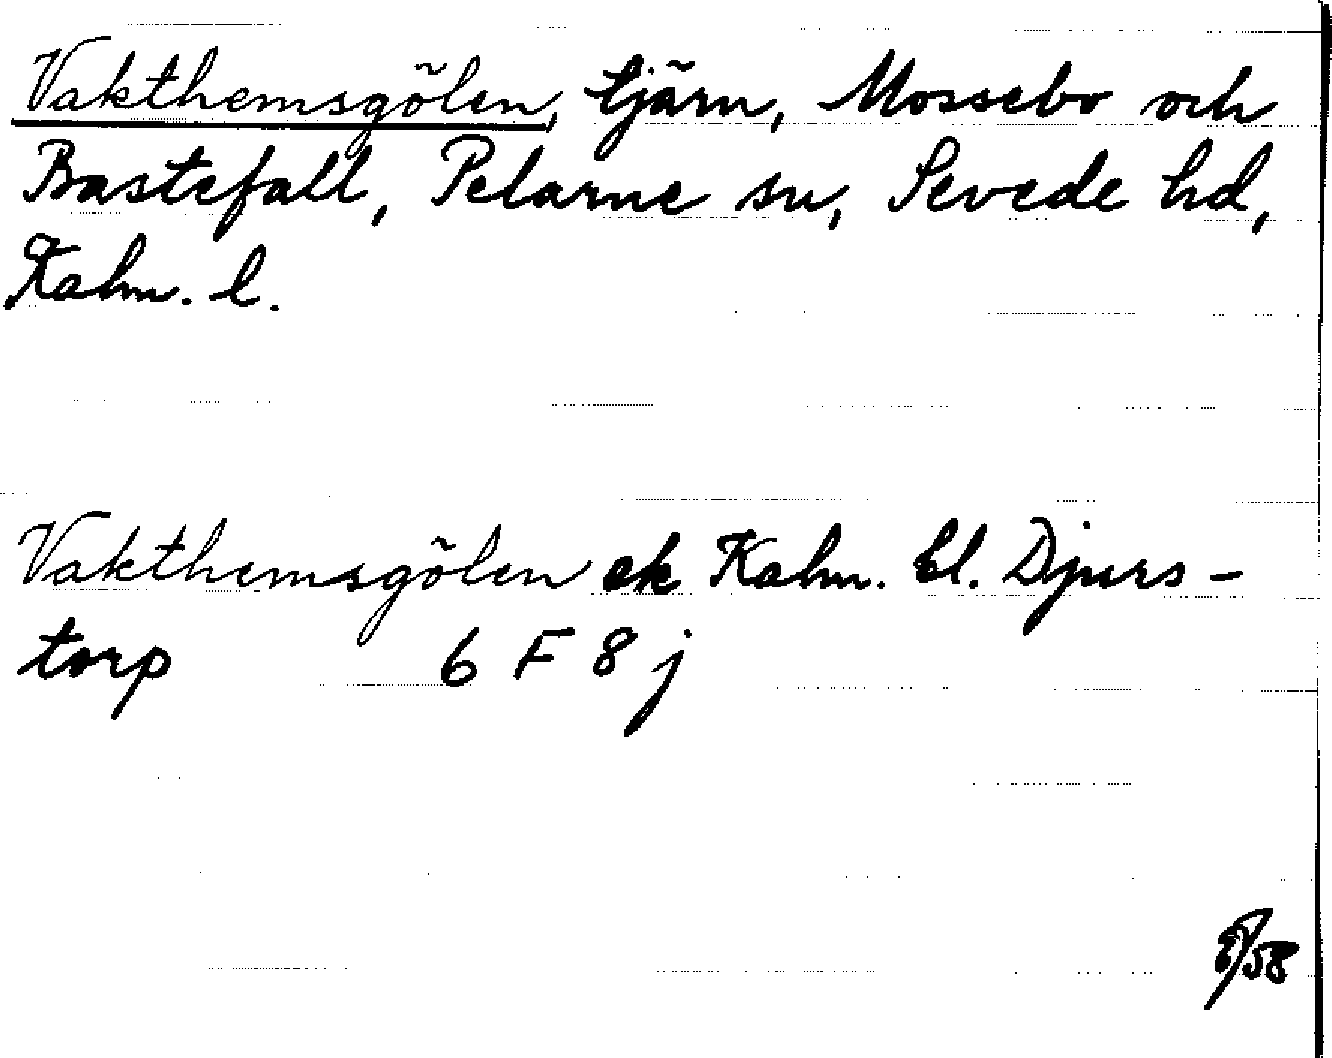 Vakthemsgölen, tjärn, Mossebo och
Bastefall, Pelarne sn, Sevede hd,
Kalm. l.
Vakthemsgölen ek Kalm. bl. Djurs-
torp 6 F 8 j